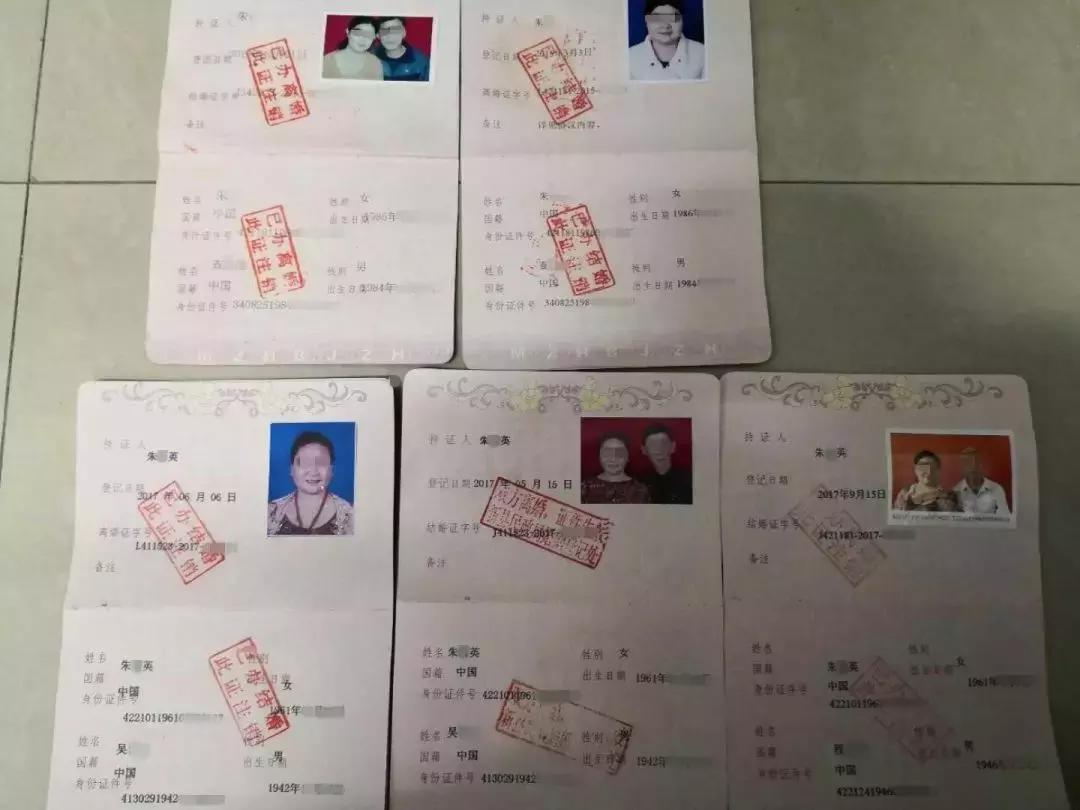 持证人 朱
登记日期
结婚证字号
备注
已办离婚
此证注销
姓名 朱 性别 女
国籍 中国 出生日期 1986年
身份证件号
已办离婚
此证注销
姓名 性别 男
国籍 中国 出生日期 1984年
身份证件号 340825198
MZHBJZH
持证人 朱
登记日期
离婚证字号
备注 详见协议内容。
已办结婚
此证注销
姓名 朱 性别 女
国籍 中国 出生日期 1986年
身份证件号
已办结婚
此证注销
姓名 性别 男
国籍 中国 出生日期 1984年
身份证件号 340825198
MZHBJZH
持证人 朱 英
登记日期 2017年06月06日
离婚证字号 L411523-2017-
备注
已办结婚
此证注销
姓名 朱 英 性别 女
国籍 中国 出生日期 1961年
身份证件号 4221011961
已办结婚
此证注销
姓名 吴 男
国籍 中国 出生日期 1942年
身份证件号 4130291942
持证人 朱 英
登记日期 2017年05月15日
结婚证字号 J411523-2017-
备注
双方离婚,
姓名 朱 英 性别 女
国籍 中国 出生日期 1961年
身份证件号 4221011961
姓名 吴 性别 男
国籍 中国 出生日期 1942年
身份证件号 4130291942
持证人 朱 英
登记日期 2017年9月15日
结婚证字号 J421181-2017-
备注
姓名 朱 英 性别 女
国籍 中国 出生日期 1961年
身份证件号 422101196
姓名 性别 男
国籍 中国 出生日期 1946年
身份证件号 4221241946